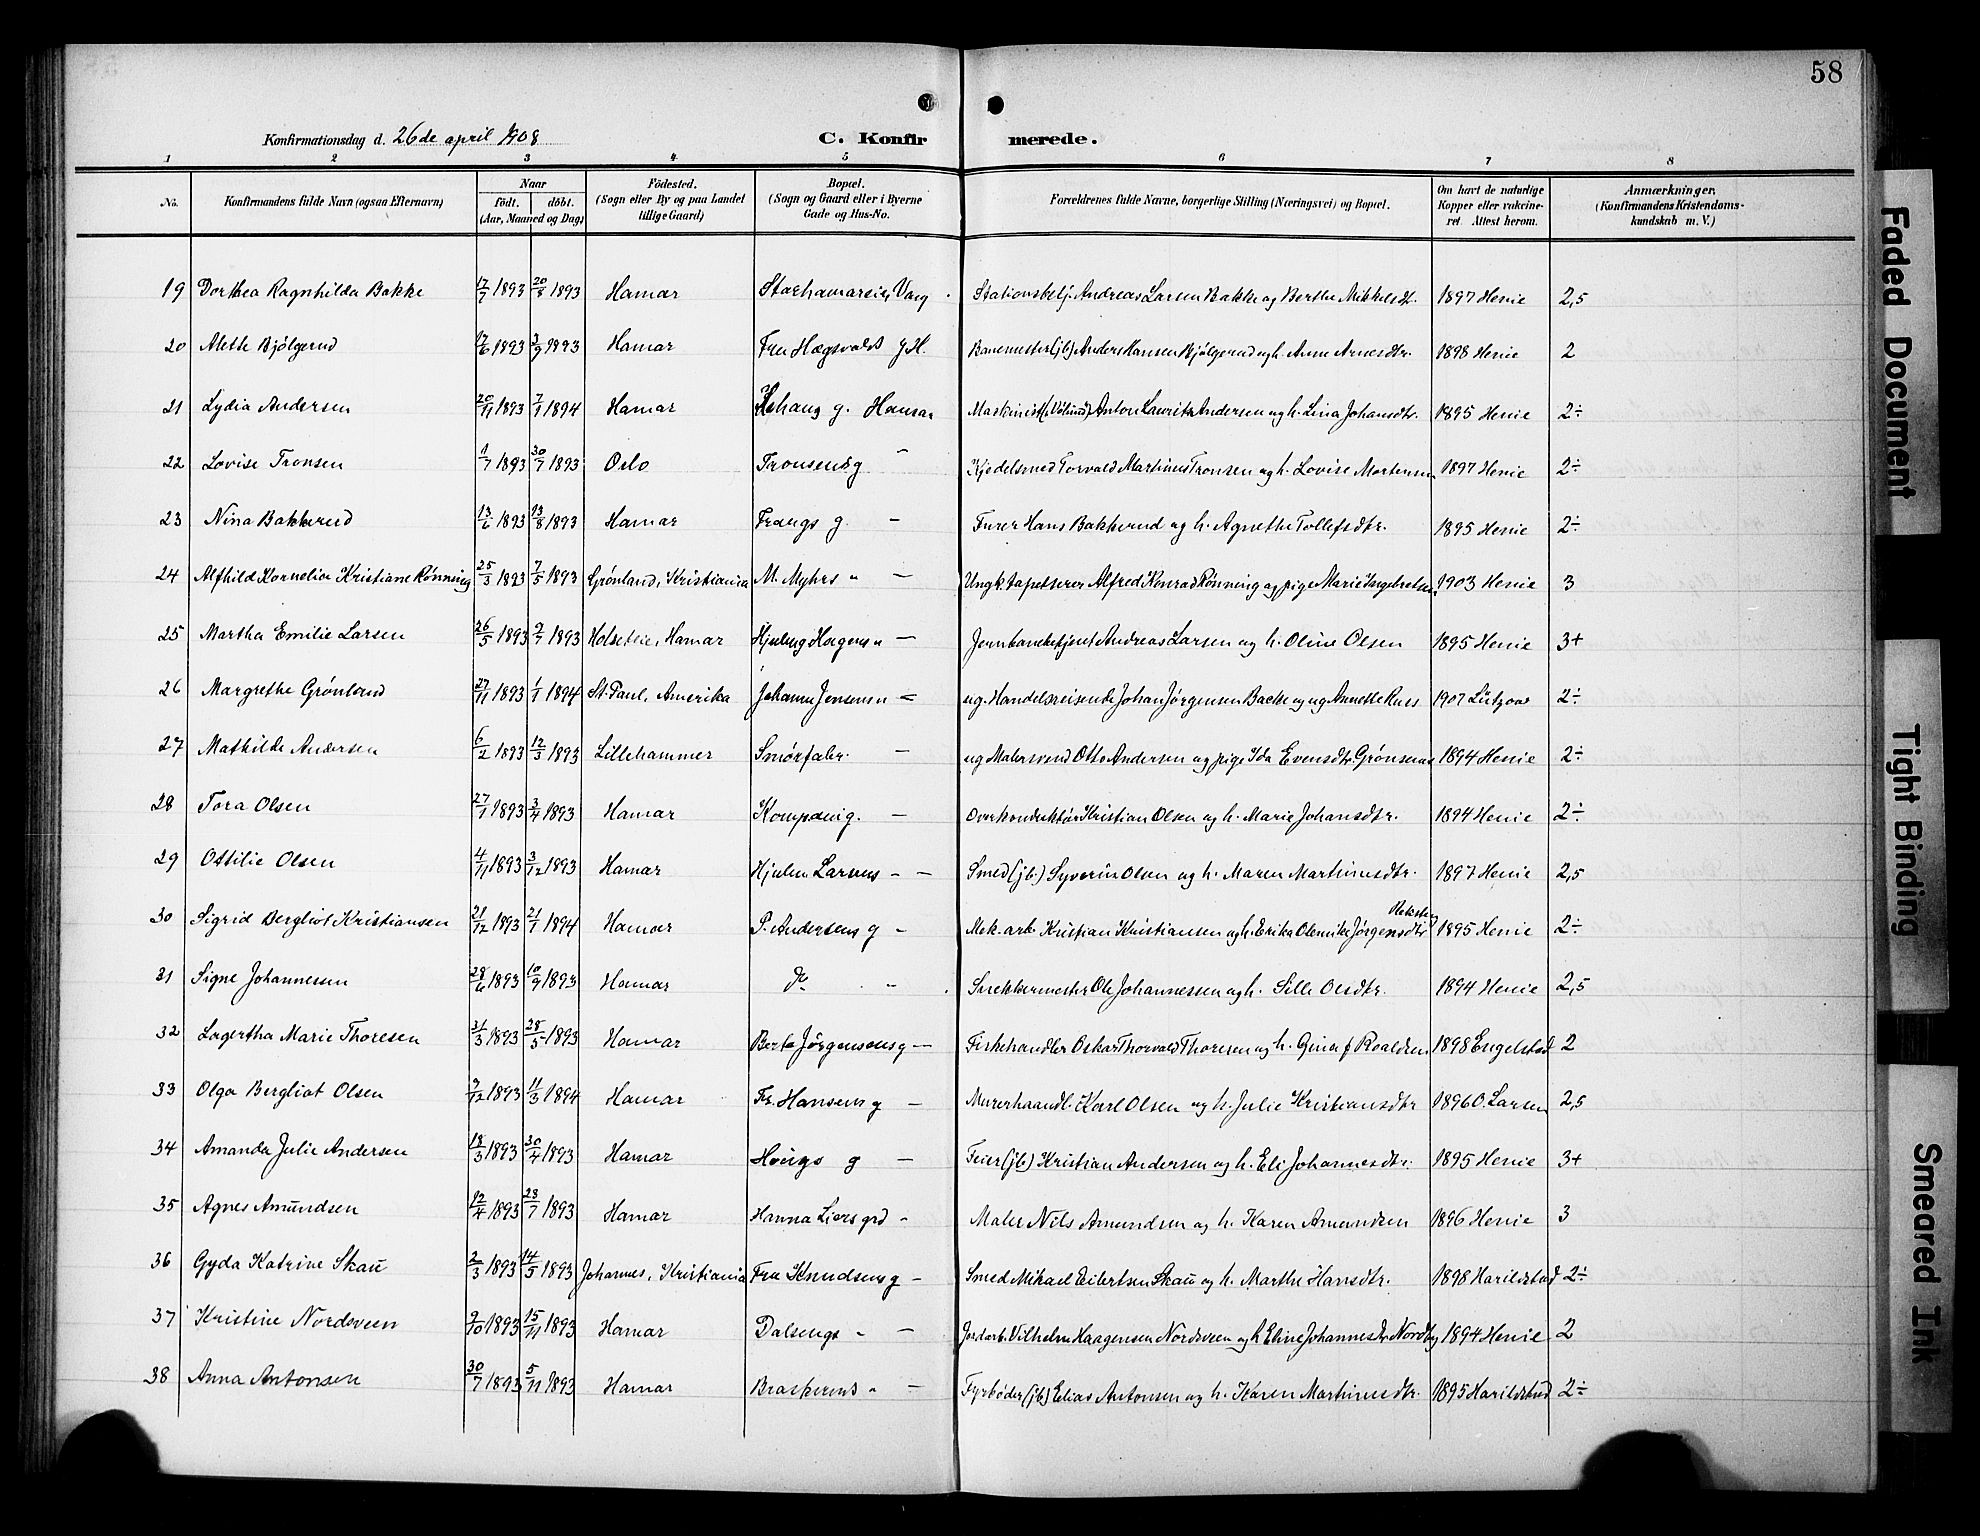 58
Konfirmationsdag d. 26de april 1908 C. Konfirmerede.
1 2 3 4 5 6 7 8
No. Konfirmandens fulde Navn (ogsaa Efternavn) Naar født. døbt. (Aar, Maaned og Dag) Fødested. (Sogn eller By og paa Landet tillige Gaard) Bopæl. (Sogn og Gaard eller i Byerne Gade og Hus-No. Forældrenes fulde Navne, borgerlige Stilling (Næringsvei) og Bopæl. Om havt de naturlige Kopper eller vakcineret. Attest herom. Anmærkninger. (Konfirmandens Kristendomskundskab m. V.)
19 Dorthea Ragnhilda Bakke 17/7 1893 20/8 1893 Hamar Storhamarsie, Vang Stationsbetj. Andreas Larsen Bakke og Berthe Mikkelsdt. 1897 Henie 2,5
20 Alethe Bjølgerud 17/6 1893 3/9 1893 Hamar Fru Hægsvolds g. H. Banemester (jb) Anders Hansen Bjølgerud og h. Anne Arnesdtr. 1898 Henie 2
21 Lydia Andersen 20/11 1893 7/1 1894 Hamar g. Hamar Maskinist Anton Lauritz Andersen og h. Lina Johansdtr. 1895 Henie 2÷
22 Lovise Tronsen 1/7 1893 30/7 1893 Oslo Tronsens g — Kjedelsmed Torvald Martinus Tronsen og h. Lovise Mortensen 1897 Henie 2÷
23 Nina Bakkerud 13/6 1893 13/8 1893 Hamar Frangs g. — Furer Hans Bakkerud og h. Agnethe Tollefsdtr. 1895 Henie 2÷
24 Alfhild Kornelia Kristiane Rønning 25/3 1893 7/5 1893 Grønland, Kristiania M. Myhrs " — Ungk. tapetserer Alfred Konrad Rønning og pige Marie Ingebretsen 1903 Henie 3
25 Martha Emilie Larsen 26/5 1893 9/7 1893 Holsetlie, Hamar Hjulmg Hagens " — Jernbanebetjent Andreas Larsen og h. Oline Olsen 1895 Henie 3+
26 Margrethe Grønland 27/11 1893 1/1 1894 St. Paul, Amerika Johanne Jensens " — ug. Handelsreisende Johan Jørgensen Backe og ug Annette Rues 1907 Lützow 2÷
27 Mathilde Andersen 6/2 1893 12/3 1893 Lillehammer Smørfabr. — ug Malersvend Otto Andersen og pige Ida Evensdtr. Grønserud 1894 Henie 2÷
28 Tora Olsen 27/1 1893 3/4 1893 Hamar Kompani g. — Overkonduktør Kristian Olsen og h. Marie Johansdtr. 1894 Henie 2÷
29 Ottilie Olsen 4/11 1893 3/12 1893 Hamar Hjulm. Larsens — — Smed (jb.) Syverin Olsen og h. Maren Martinusdtr. 1897 Henie 2,5
30 Sigrid Bergliot Kristiansen 21/12 1893 21/1 1894 Hamar P. Andersens g — Mek. arb. Kristian Kristiansen og h. Erika Olenrike Jørgensdtr 1895 Henie 2÷
31 Signe Johannessen 28/6 1893 10/9 1893 Hamar do — Snekkermester Ole Johannessen og h. Sille Olsdtr. 1894 Henie 2,5
32 Lagertha Marie Thoresen 31/3 1893 28/5 1893 Hamar Berte Jörgensens g — Fiskehandler Oskar Thorvald Thoresen og h. Gina f Roaldsen 1898 Engelstad 2
33 Olga Bergliot Olsen 9/12 1893 11/3 1894 Hamar Fr. Hansens g — Murerhaandl. Karl Olsen og h. Julie Kristiansdtr 1896 O. Larsen 2,5
34 Amanda Julie Andersen 18/3 1893 30/4 1893 Hamar Houges g — Feier (jb) Kristian Andersen og h. Eli Johannesdtr. 1895 Henie 3+
35 Agnes Amundsen 12/4 1893 23/7 1893 Hamar Hanna Liers grd — Maler Nils Amundsen og h. Karen Amundsen 1896 Henie 3
36 Gyda Katrine Skau 2/3 1893 14/5 1893 Johannes, Kristiania Fru Knudsens g — Smed Mikael Eilertsen Skau og h. Marthe Hansdtr. 1898 Harildstad 2÷
37 Kristine Nordsveen 9/10 1893 15/11 1893 Hamar Dalsengs " — Jordarb. Vilhelm Haagensen Nordsveen og h Eline Johannesdr Nordby 1894 Henie 2
38 Anna Antonsen 30/7 1893 5/11 1893 Hamar Braskeruds " — Fyrbøder (jb) Elias Antonsen og h. Karen Martinusdtr. 1895 Harildstad 2÷
Faded Document
Tight Binding
Smeared Ink